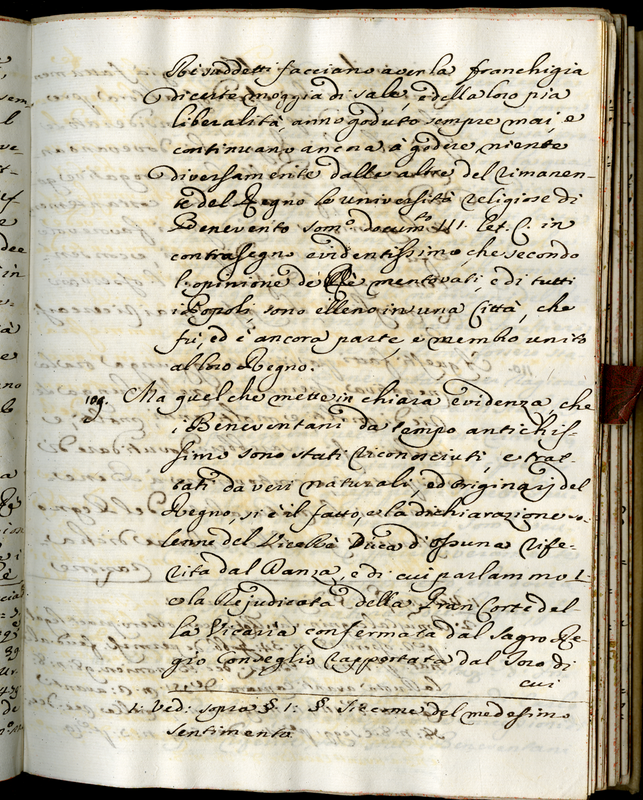 Rè suddetti facciano aver la franchigia
di certe moggia di sale, e della loro pia
liberalità, anno goduto sempre mai, e
continuano ancora à godere niente
diversamente dalle altre del rimanen-
te del Regno le università religiose di
Benevento som.o docum.to III. Let. C. in
contrasegno evidentissimo che secondo
l'opinione de Rè mentovati, e di tutti
i Popoli, sono elleno in una Città, che
fu, ed è ancora parte, e membro unito
al loro Regno.
109. Ma quel che mette in chiara evidenza, che
i Beneventani da tempo antichis-
simo sono stati riconosciuti, e trat-
tati da veri naturali, ed originarj del
Regno, si è il fatto, e la dichiarazione so-
lenne del Vicerè Duca d'Ossuna rife-
rita dal Panza, e di cui parlammo 1.
e la Rejudicata della Gran Corte del-
la Vicaria confermata dal Sagro Re-
gio Conseglio rapportata dal Toro di
cui
1. Ved: sopra §. 1: §. Siccome del medesimo
sentimento